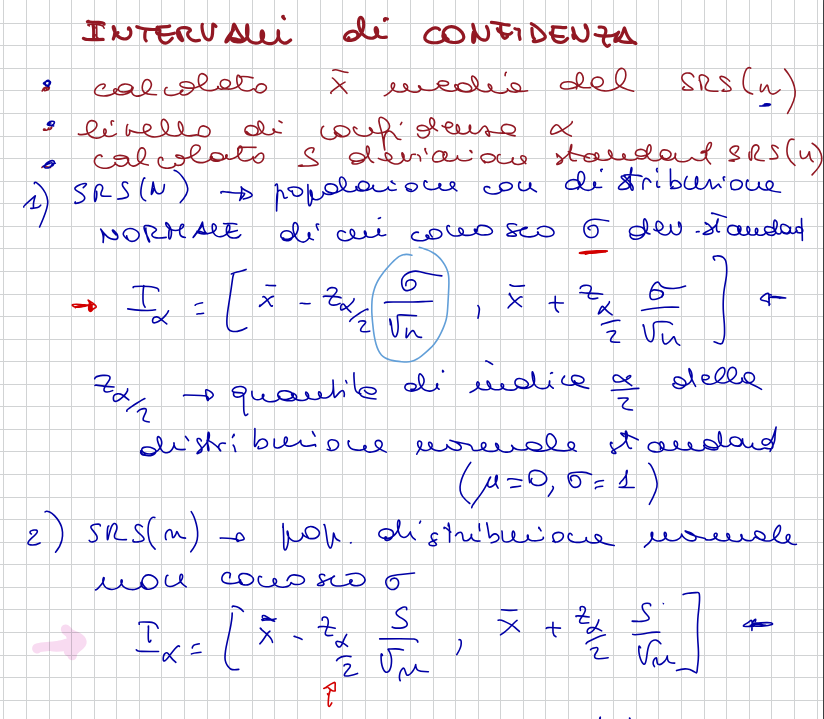 INTERVALLI di CONFIDENZA
• calcolato x̄ media del SRS(n)
• livello di confidenza α
• calcolato S deviazione standard SRS(n)
1) SRS(N) → popolazione con distribuzione
NORMALE di cui conosco σ dev. standard
→ I_α = [ x̄ - z_α/2 σ/√n , x̄ + z_α/2 σ/√n ] ←
z_α/2 → quantile di indice α/2 della
distribuzione normale standard
(μ=0, σ=1)
2) SRS(n) → pop. distribuzione normale
non conosco σ
→ I_α = [ x̄ - z_α/2 S/√n , x̄ + z_α/2 S/√n ] ←